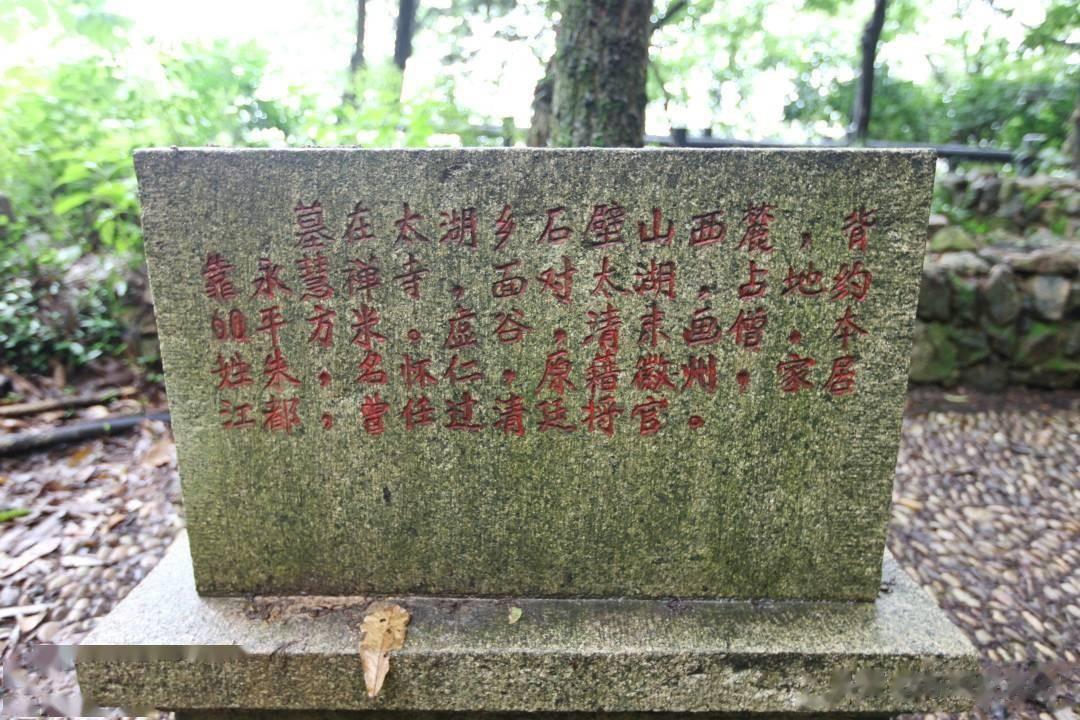 墓在太湖乡石壁山西麓，背
靠永慧禅寺，面对太湖，占地约
60平方米。虚谷，清末画僧，本
姓朱，名怀仁，原藉徽州，家居
江都，曾任过清廷将官。